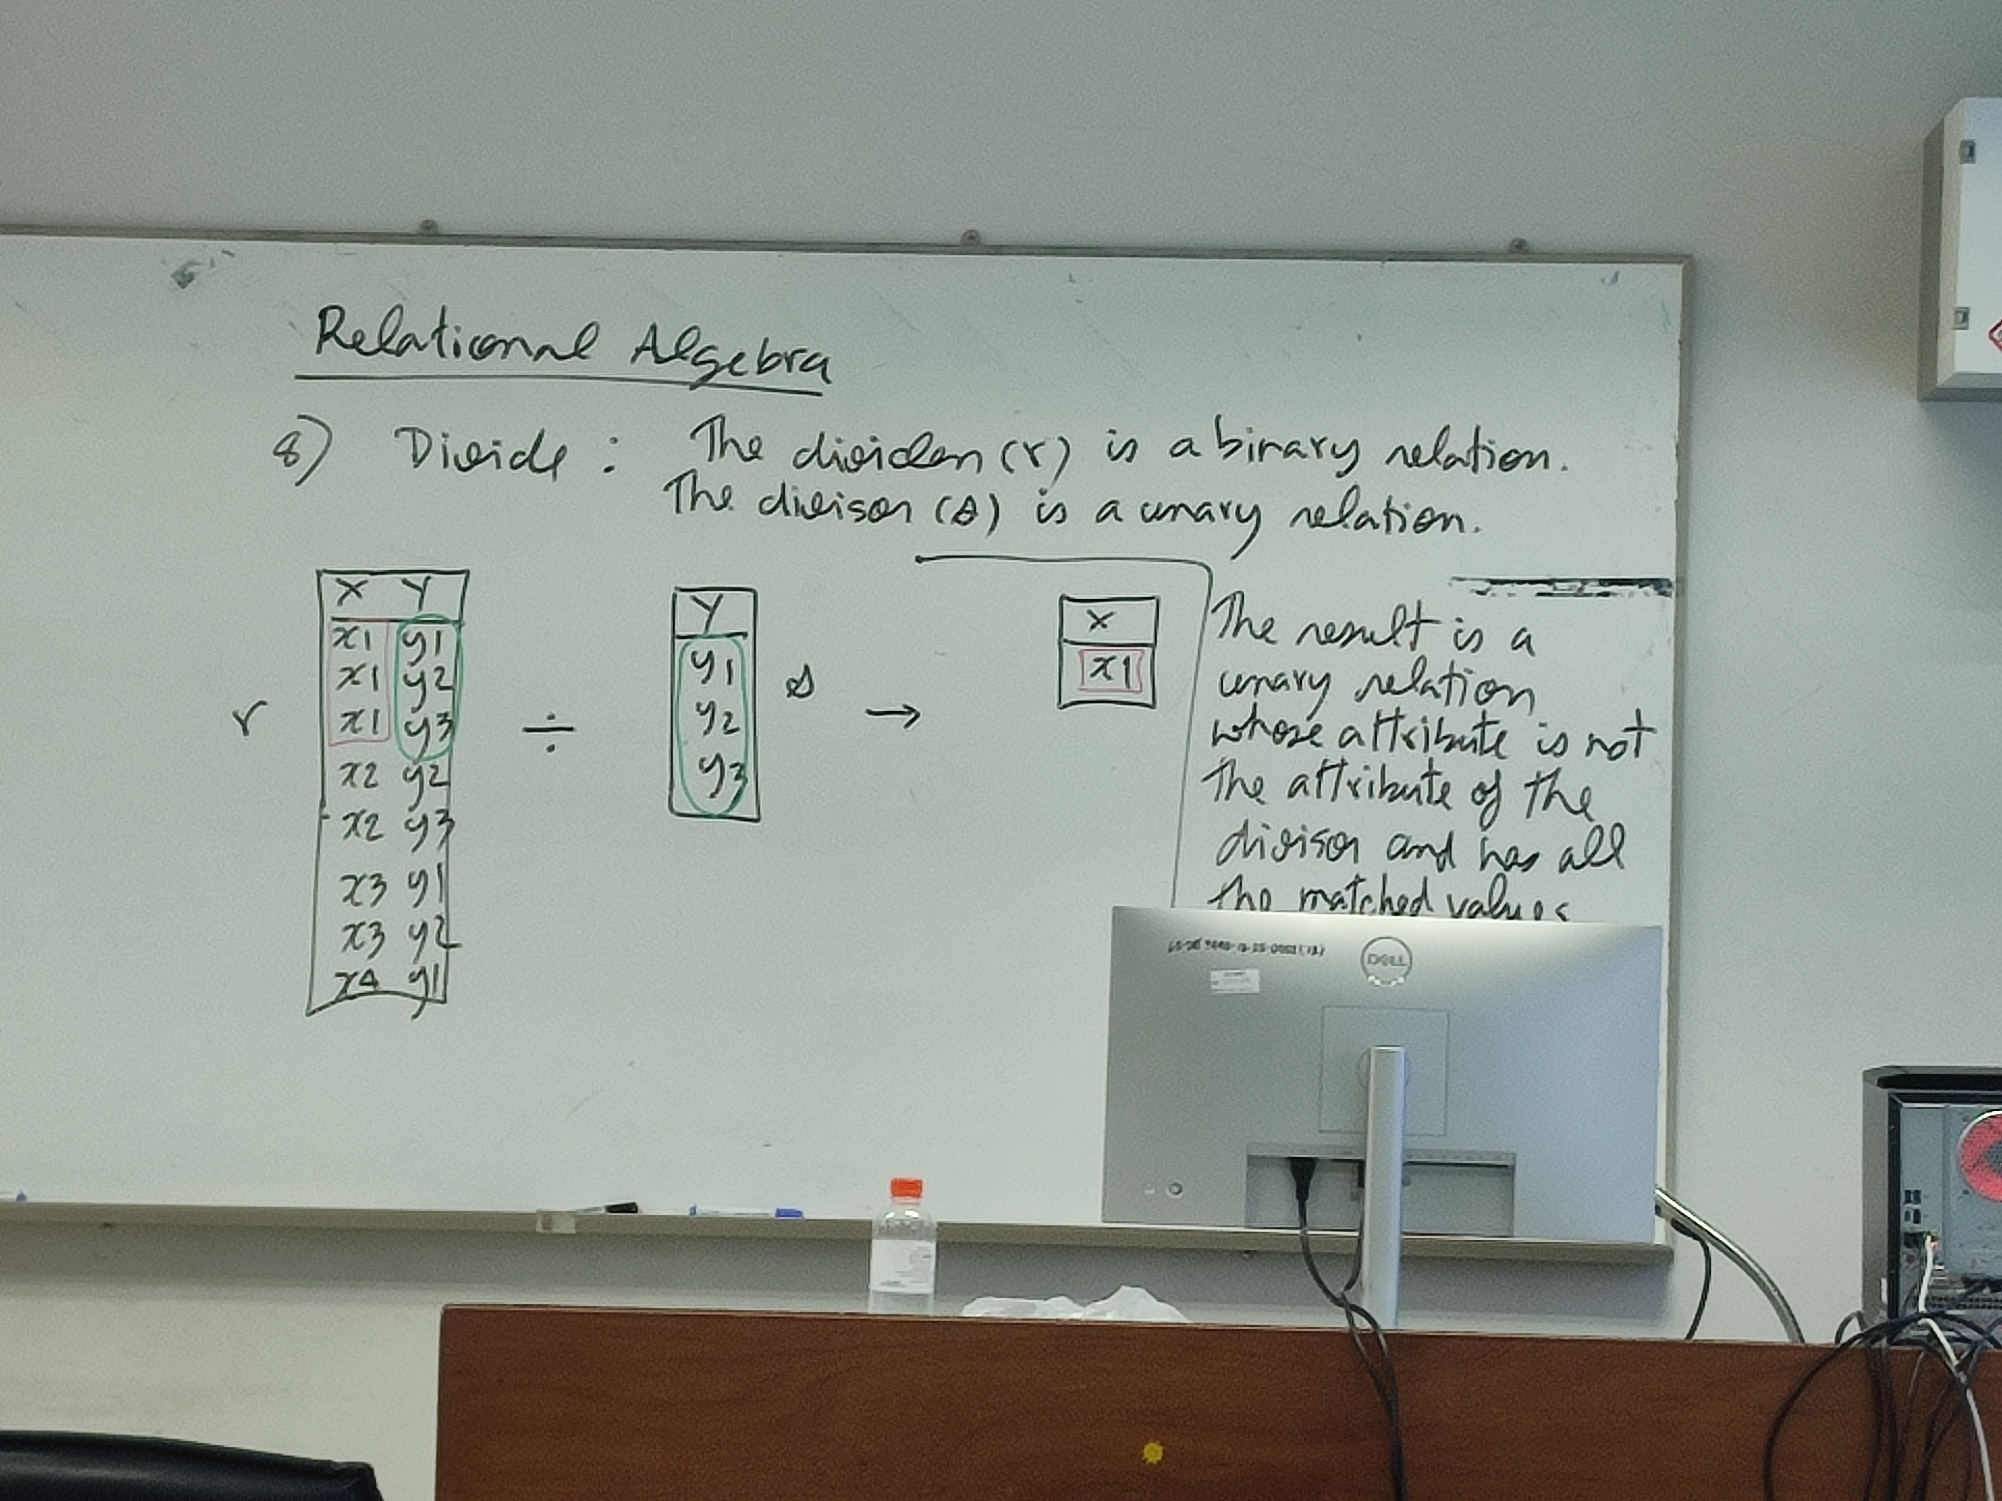 Relational Algebra
8) Divide : The dividen (r) is a binary relation.
The divisor (s) is a unary relation.
X Y
x1 y1
x1 y2
x1 y3
x2 y2
x2 y3
x3 y1
x3 y2
x4 y1
r
÷
Y
y1
y2
y3
s
→
X
x1
The result is a
unary relation
whose attribute is not
the attribute of the
divisor and has all
the matched values
DELL